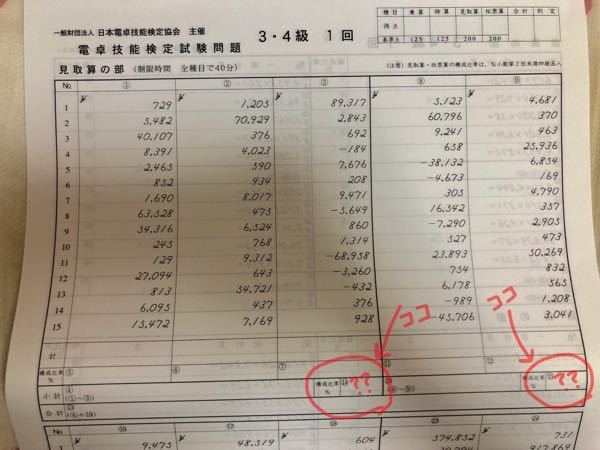 一般財団法人 日本電卓技能検定協会 主催
電卓技能検定試験問題
3・4級 1回
種目 乗算 除算 見取算 伝票算 合計 判定
得点
基準点 125 125 200 200
見取算の部 (制限時間 全種目で40分)
(注意) 見取算・伝票算の構成比率は、%小数第2位未満四捨五入
No. ① ② ③ ⑧ ⑨
1 ¥ 729 ¥ 1,205 ¥ 89,317 ¥ 5,123 ¥ 4,681
2 5,482 70,929 2,843 60,796 370
3 40,107 376 692 9,241 463
4 8,391 4,023 -184 658 25,936
5 2,465 590 7,676 -38,132 6,854
6 852 934 208 -4,673 169
7 1,690 8,017 9,471 305 4,790
8 63,528 475 -5,649 16,542 357
9 54,316 6,524 860 -7,290 2,905
10 245 768 1,314 527 473
11 129 9,312 -68,958 23,893 50,269
12 27,094 643 -3,260 754 832
13 813 54,721 -432 6,178 565
14 6,095 437 376 -989 1,208
15 15,472 7,169 928 -45,706 3,041
ココ ココ
計
構成比率 % ⑤ ⑥ ⑦ ⑫
小計 ④ (①~③) 構成比率 % ⑭ ?? 構成比率 % ??
合計
No. ⑯ ⑰ ⑱
1 ¥ 9,475 ¥ 48,519 ¥ 604 ¥ 574,852 ¥ 731
917,869